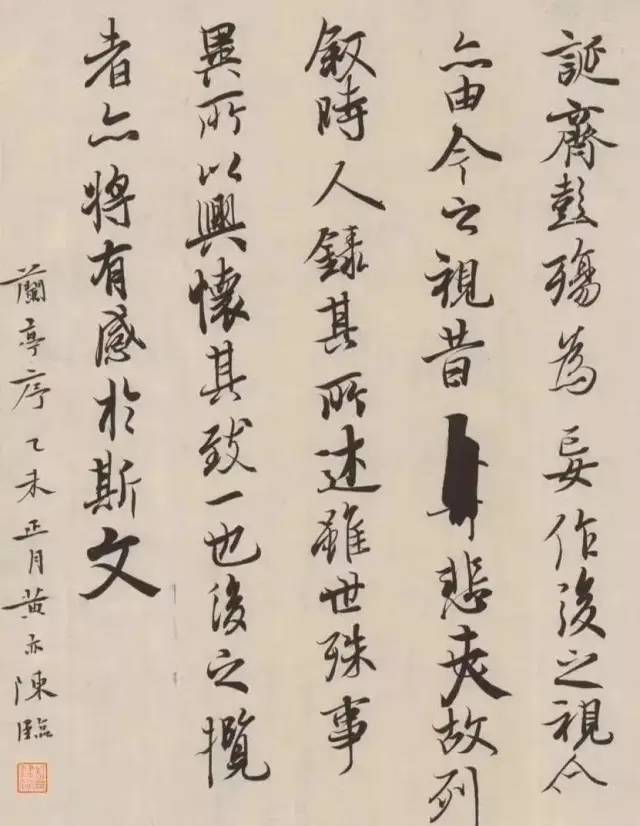 誕齊彭殤為妄作後之視今
亦由今之視昔悲夫故列
敘時人錄其所述雖世殊事
異所以興懷其致一也後之攬
者亦將有感於斯文
蘭亭序乙未正月黃亦陳臨